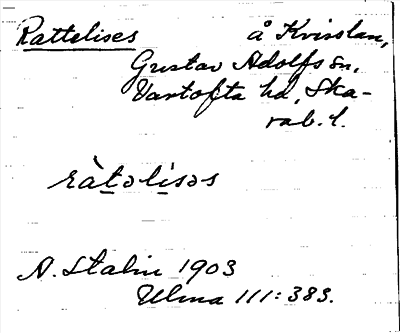 Rattelises å Kvisslan,
Gustav Adolfs sn.
Vartofta hd, Ska-
rab. l.
ràt̲əli̲səs
A. Stalin 1903
Ulma 111:383.